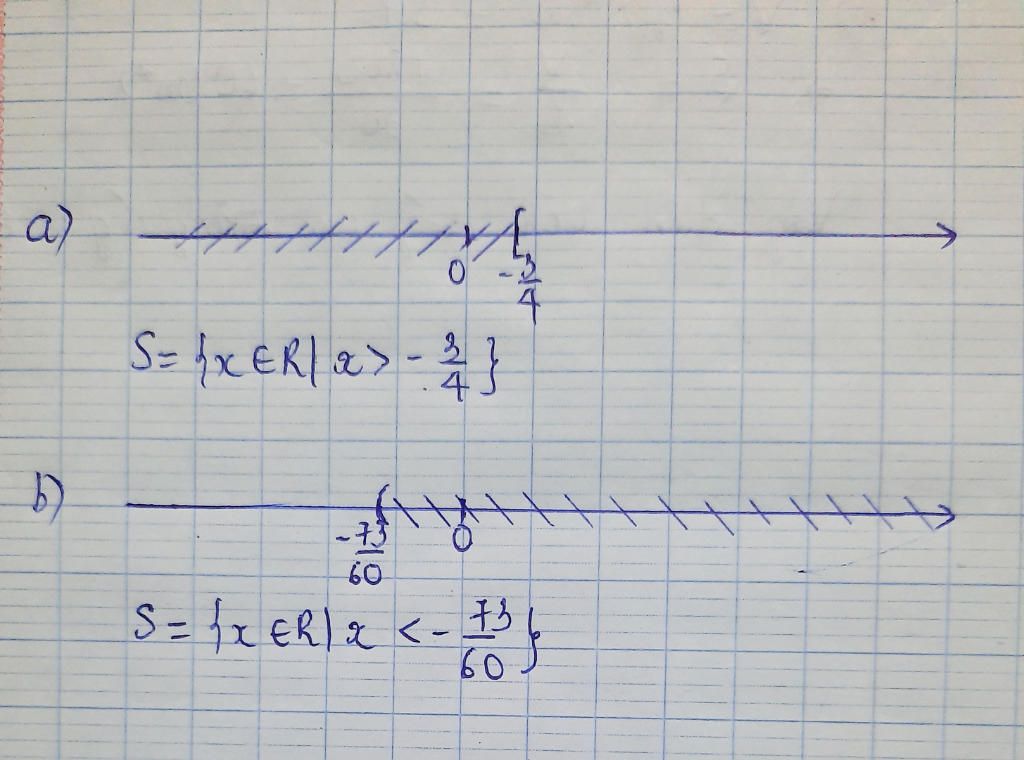 a)
0 -3/4
S = {x ∈ R | x > - 3/4}
b)
-73/60 0
S = {x ∈ R | x < - 73/60}